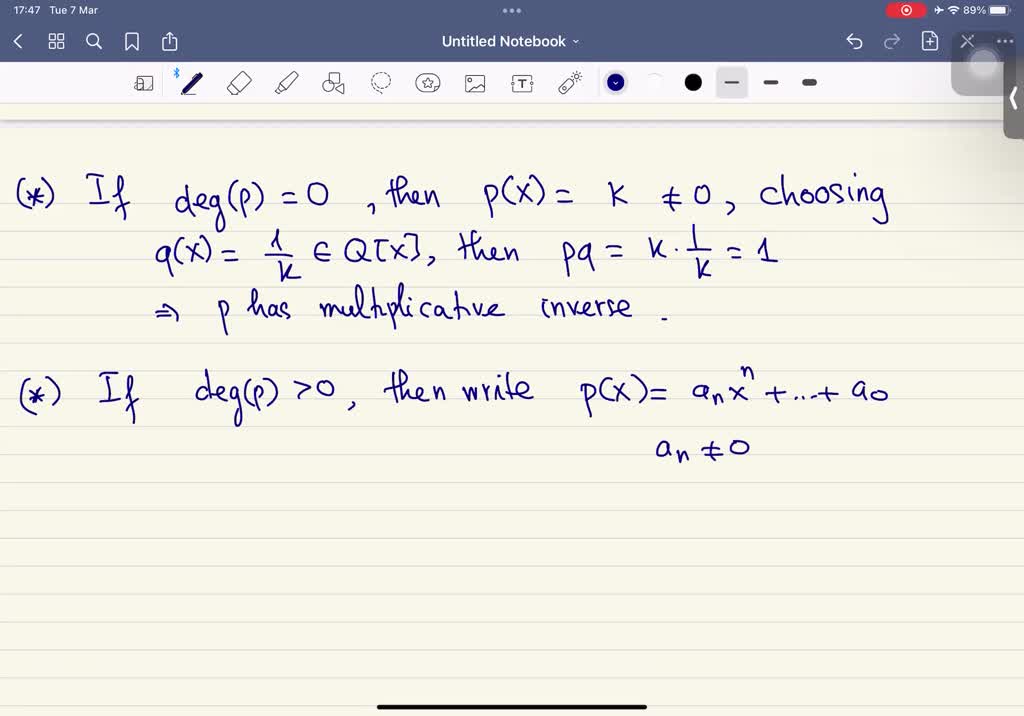 17:47 Tue 7 Mar
89%
Untitled Notebook
(*) If deg(p) = 0, then p(x) = k ≠ 0, choosing
q(x) = 1/k ∈ Q[x], then pq = k · 1/k = 1
⇒ p has multiplicative inverse.
(*) If deg(p) > 0, then write p(x) = aₙxⁿ + ... + a₀
aₙ ≠ 0